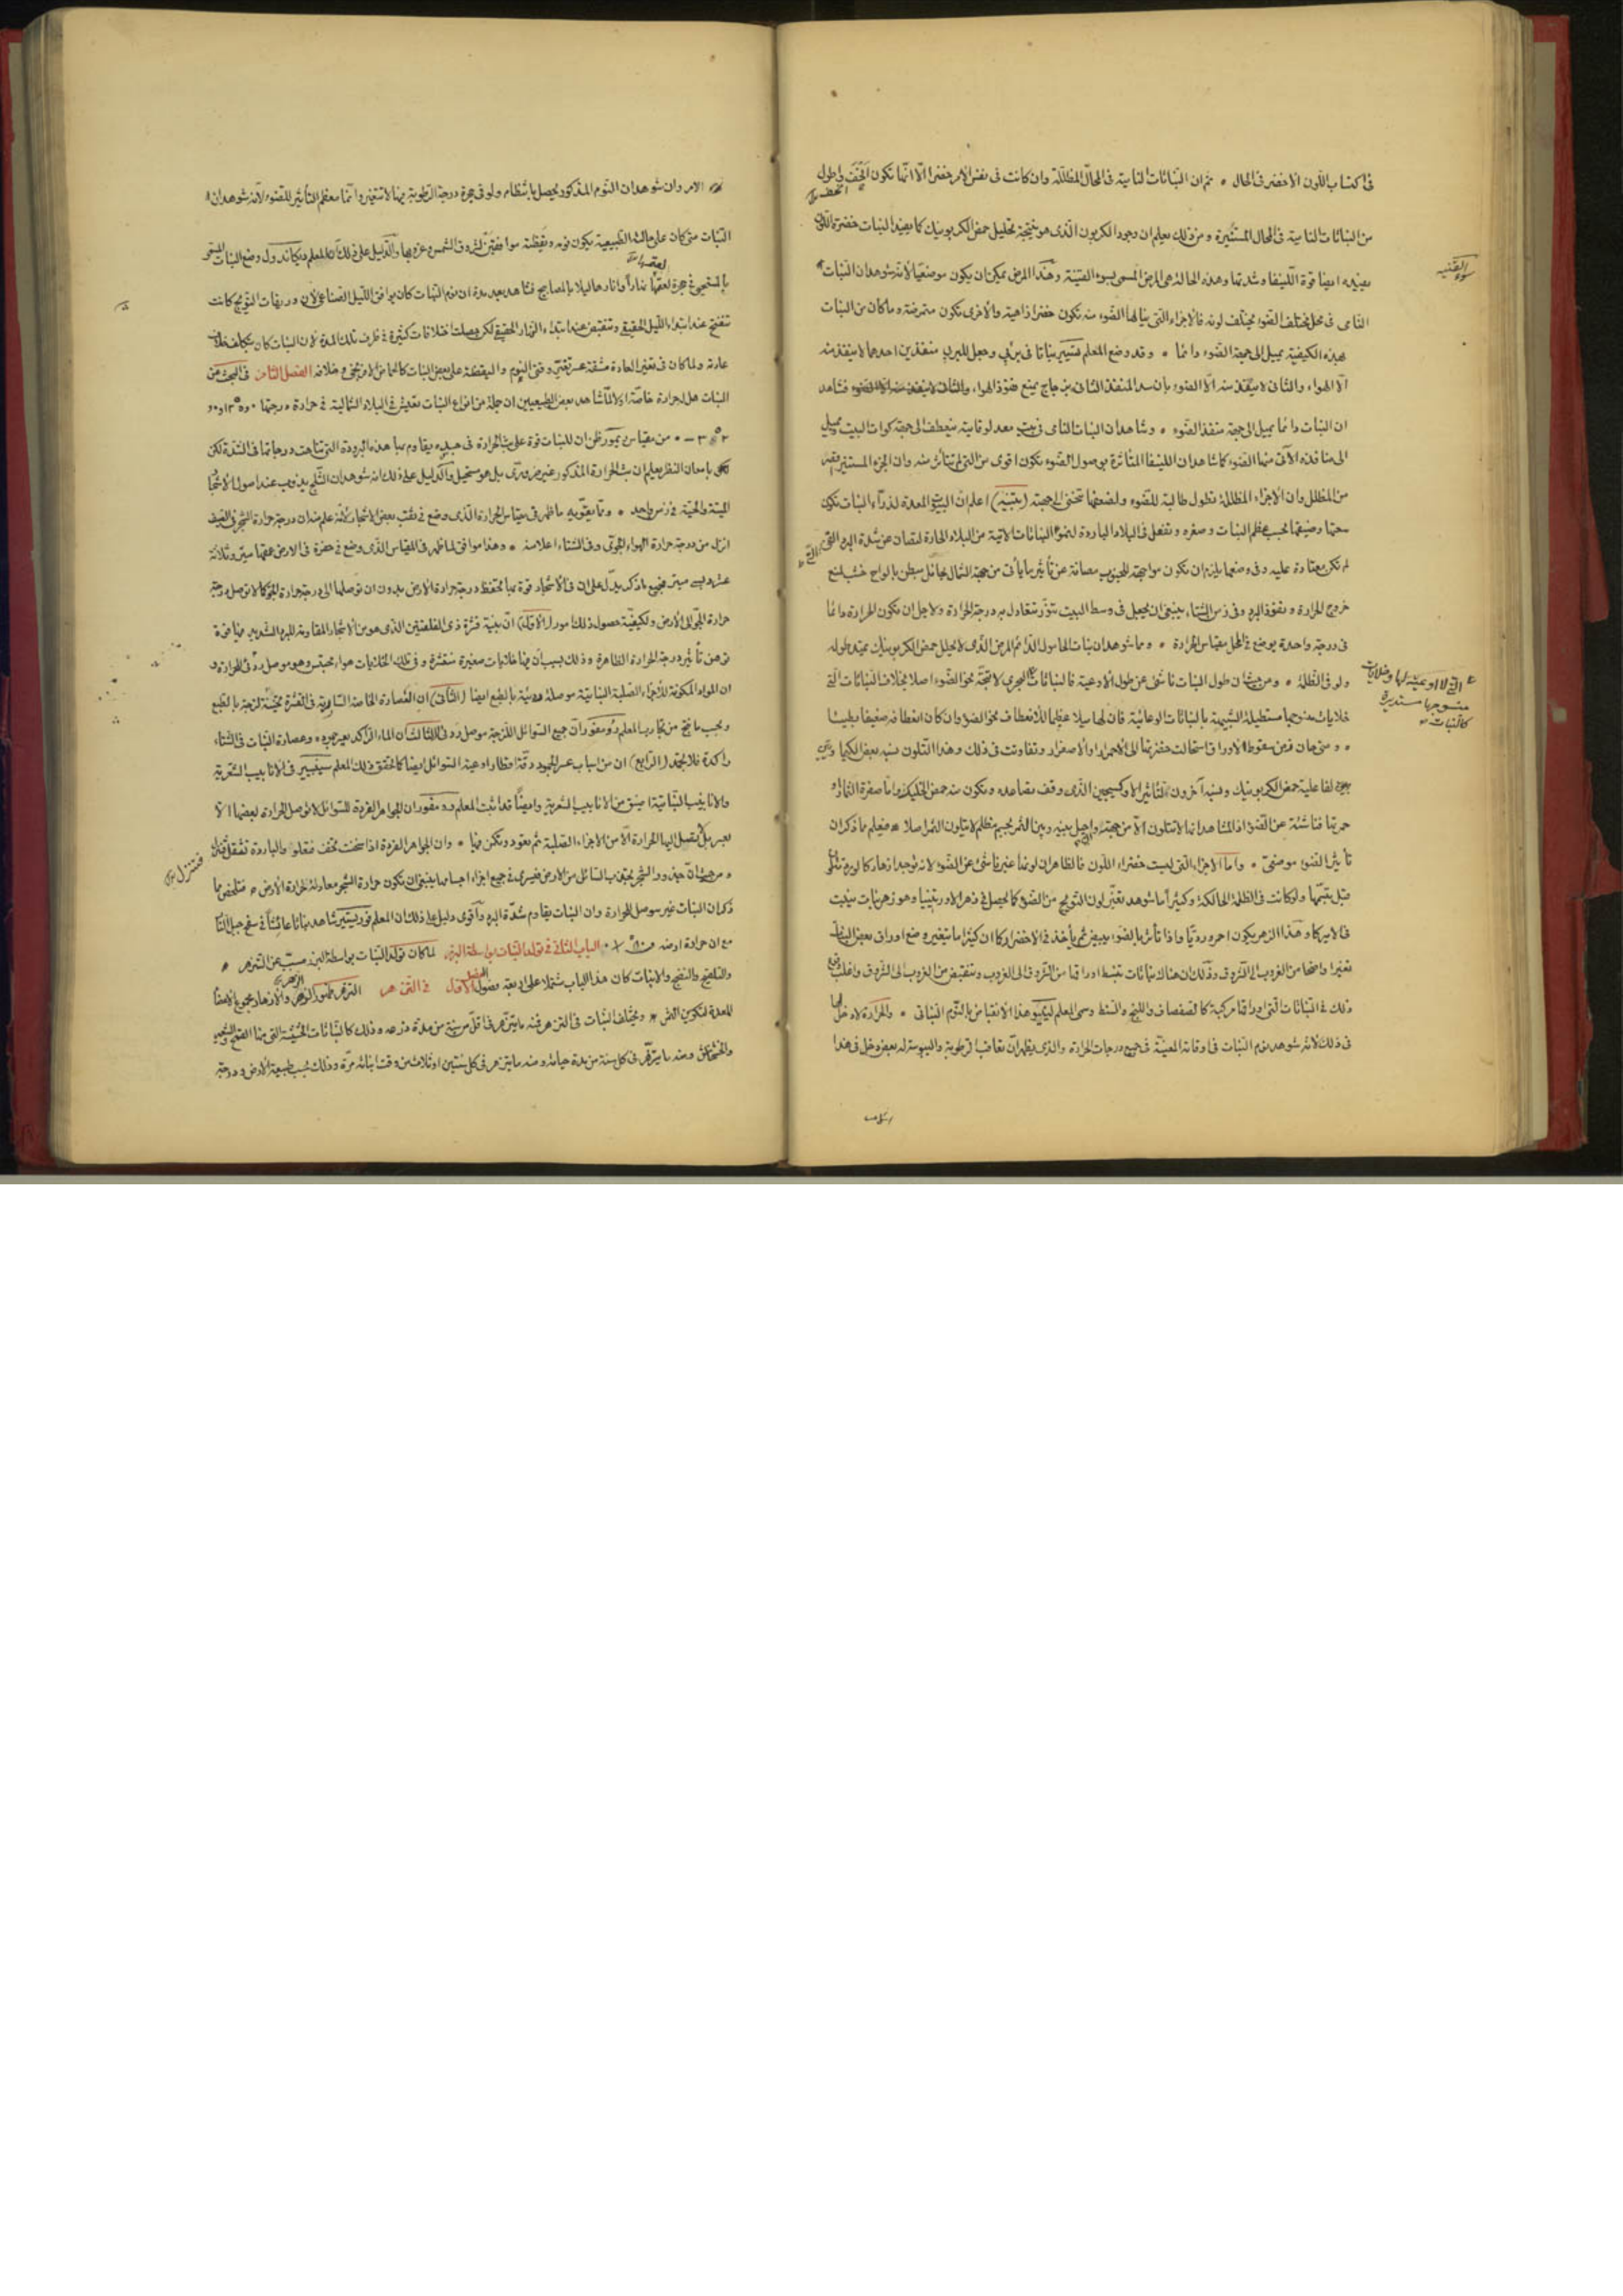 فى اكتساب اللون الاخضر فى الحال ٭ ثم ان النباتات النامية فى المحال المظللة وان كانت فى نفس الامر خضرا الا انها تكون اخف واطول
من النباتات النامية فى المحال المستنيرة ومن ذلك يعلم ان وجود الكربون الذى هو نتيجة تحليل حمض الكربونيك كما يفيد النبات خضرة اللون
يفيده ايضا قوة الليفا وشدتها وهذه الحالة هى المرض المسمى بسوء القنية وهذا المرض يمكن ان يكون موضعيا لانه شوهد ان النبات
سوء القنيه
النامى فى محل مختلف الضوء يختلف لونه فالاجزاء التى ينالها الضوء منه تكون خضرا زاهية والاخرى تكون متمرضة وما كان من النبات
بهذه الكيفية يميل الى جهة الضوء دائما ٭ وقد وضع المعلم تسيير نباتا فى بئر وجعل للبئر منفذين احدهما لا ينفذ منه
الا الهواء والثانى لا ينفذ منه الا الضوء بان سد المنفذ الثانى بزجاج يمنع نفوذ الهواء فشاهد
ان النبات دائما يميل الى جهة منفذ الضوء ٭ وشاهد ان النبات النامى فى بيت معد لوقايته ينعطف الى جهة كوات البيت ويميل
الى منافذه الآتى منها الضوء كما شاهد ان الليفا المتأثرة بوصول الضوء تكون اقوى من التى لم تتأثر منه وان الجزء المستنير اقصر
من المظلل وان الاجزاء المظللة تطول طالبة للضوء ولضعفها تنحنى الى جهته (تنبيه) اعلم ان البيوت المعدة لذراء النبات تكون
سعتها وضيقها بحسب عظم النبات وصغره وتفعل فى البلاد الباردة لنمو النباتات الآتية من البلاد الحارة لتصان عن شدة البرد التى
لم تكن معتادة عليه وفى وضعها يلزم ان تكون مواجهة للجنوب مصانة عن تأثير ما يأتى من جهة الشمال بحائل مبطن بالواح خشب لمنع
خروج الحرارة ونفوذ البرد وفى زمن الشتاء ينبغى ان يجعل فى وسط البيت تنور تتعادل به درجة الحرارة ولاجل ان تكون الحرارة دائما
فى درجة واحدة يوضع فى المحل مقياس الحرارة ٭ وما شوهد ان نبات الهاموك الدائم المرض الذى لا يحلل حمض الكربونيك يمتد طوله
ولو فى الظلمة ٭ ومن حيث ان طول النبات ناشئ عن طول الاوعية فالنباتات البحرى لا تتجه نحو الضوء اصلا بخلاف النباتات التى
التى لا اوعية لها وخلايات
منسوجها مستديرة
كالنبات
خلايات منسوجها مستطيلة الشبيهة بالنباتات الوعائية فان لها ميلا عظيما للانعطاف نحو الضوء وان كان انعطافه ضعيفا بطيئا
٭ ومتى حان زمن سقوط الاوراق استحالت خضرتها الى الاحمرار او الاصفرار وتفاوتت فى ذلك وهذا التلون نسبه بعض
لفاعلية حمض الكربونيك ونسبه آخرون لتأثير الاوكسيجين الذى وقف تصاعده وتكون منه حمض واما صفرة الثمار او
حمرتها فناشئة عن الضوء اذ المشاهد انها لا تتلون الا من جهته واذا جعل بينه وبين الثمر جسم مظلم لا يتلون الثمر اصلا ٭ فيعلم مما ذكر ان
تأثير الضوء موضعى ٭ واما الاجزاء التى ليست خضراء اللون فالظاهر ان لونها غير ناشئ عن الضوء لانه توجد ازهار كالورد تتلون
قبل تفتحها ولو كانت فى الظلمة الحالكة وكثيرا ما شوهد تغير لون التويج من الضوء كما يحصل فى زهر الاورتنسيا وهو زهر نبات ينبت
فى الاميركا وهذا الزهر يكون احمر ورديا واذا تأثر بالضوء يبيض ثم يأخذ فى الاخضرار كما ان كثيرا ما يتغير وضع اوراق بعض النبات
تغيرا واضحا من الغروب الى الشروق وذلك ان هناك نباتات تنبسط اوراقها من الشروق الى الغروب وتنقبض من الغروب الى الشروق واغلب وقوع
ذلك فى النباتات التى اوراقها مركبة كالصفصاف واللبخ والسنط وسمى المعلم لينيو هذا الانقباض بالنوم النباتى ٭ والحرارة لا دخل لها
فى ذلك لانه شوهد نوم النبات فى اوقاته المعينة فى جميع درجات الحرارة والذى يظهر ان تعاقب الرطوبة واليبوسة له بعض دخل فى هذا
الامر وان شوهد ان النوم المذكور يحصل بانتظام ولو فى حجرة درجة الرطوبة فيها لا تتغير وانما معظم التأثير للضوء لانه شوهد ان
النبات متى كان على حالته الطبيعية يكون نومه ويقظته موافقين لشروق الشمس وغروبها والدليل على ذلك ان المعلم ديكاندول وضع النبات المسمى
بالمستحى فى حجرة اعتمها نهارا وانارها ليلا بالمصابيح فشاهد بعد مدة ان نوم النبات كان يوافق الليل الصناعى لان وريقات التويج كانت
تنفتح عند ابتداء الليل الحقيقى وتنقبض عند ابتداء النهار الحقيقى لكن حصلت اختلافات كثيرة فى ظرف تلك المدة لان النبات كان يتكلف خلاف
عادته ولما كان فى تغيير العادة مشقة عسر تغير وقتى النوم واليقظة على بعض النبات كالحماض الافرنجى وخلافه الفصل الثامن فى البحث عن
النبات هل له حرارة خاصة او لا لما شاهد بعض الطبيعيين ان جملة من انواع النبات تعيش فى البلاد الشمالية فى حرارة درجتها
من مقياس ريمور ظن ان للنبات قوة على بث الحرارة فى جسده يقاوم بها هذه البرودة التى تناهت درجاتها فى الشدة لكن
بامعان النظر يعلم ان بث الحرارة المذكور غير ضرورى بل هو مستحيل وآكد دليل على ذلك انه شوهد ان الثلج يذوب عند اصول الاشجار
الميتة والحية فى زمن واحد ٭ ومما يقويه ما ظهر فى مقياس الحرارة الذى وضع فى ثقب بعض الاشجار لانه علم منه ان درجة حرارة الشجر فى الصيف
انزل من درجة حرارة الهواء الجوى وفى الشتاء اعلا منه ٭ وهذا موافق لما ظهر فى المقياس الذى وضع فى حفرة فى الارض عمقها ميتر وثلاثة
عشر ديسى ميتر فجميع ما ذكر يدل على ان فى الاشجار قوة بها تحفظ درجة حرارة الارض بدون ان توصلها الى درجة حرارة الجو كما لا توصل درجة
حرارة الجو الى الارض ولكيفية حصول ذلك امور (الاول) ان بنية قشرة ذى الفلقتين الذى هو من الاشجار المقاومة للبرد الشديد فيها قوة
توهن تأثير درجة الحرارة الظاهرة وذلك بسبب ان فيها خلايات صغيرة منتشرة وفى تلك الخلايات هواء محتبس وهو موصل ردئ للحرارة و
ان المواد المكونة للاجزاء الصلبة النباتية موصلة رديئة بالطبع ايضا (الثانى) ان العصارة الخاصة السارية فى القشرة ثخينة لزجة بالطبع
وبحسب ما نتج من تجاريب المعلم رومفور ان جميع السوائل اللزجة موصل ردئ (الثالث) ان الماء الراكد يعسر جموده وعصارة النبات فى الشتاء
راكدة فلا تجمد (الرابع) ان من اسباب عسر الجمود دقة اقطار اوعية السوائل ايضا كما تحقق ذلك المعلم سينيبير فى الانابيب الشعرية
والانابيب النباتية اضيق من الانابيب الشعرية وايضا قد اثبت المعلم رومفور ان الجواهر الفردة للسوائل لا توصل الحرارة لبعضها الا
بعسر بل تصل اليها الحرارة الا من الاجزاء الصلبة ثم تعود وتكمن فيها ٭ وان الجواهر الفردة اذا سخنت تخف فتعلو والباردة تثقل
فتنزل
٭ ومن حيث ان جذور الشجر تجتذب السائل من الارض فيسرى فى جميع اجزاء اجسامها ينبغى ان تكون حرارة الشجر معادلة لحرارة الارض ٭ فتلخص مما
ذكر ان النبات غير موصل للحرارة وان النبات يقاوم شدة البرد وأقوى دليل على ذلك ان المعلم فورستير شاهد نباتا عائشا فى سفح جبل النار
مع ان حرارة ارضه الباب الثانى فى تولد النبات بواسطة البزر لما كان تولد النبات بواسطة البزر مسبب عن التزهر ٭
والتلقيح والنضج والانبات كان هذا الباب مشتملا على اربعة فصول الفصل الاول فى التزهر التزهر ظهور الزهر والازهار مجموع الاعضا
المعدة لتكوين النسل ٭ ويختلف النبات فى التزهر فمنه ما يتزهر فى اقل من سنة من مدة زرعه وذلك كالنباتات الحشيشية التى منها القمح والشعير
والخشخاش ومنه ما يتزهر فى كل سنة من مدة حياته ومنه ما يتزهر فى كل سنتين او ثلاث من وقت انباته مرة وذلك بحسب طبيعة الارض ودرجة